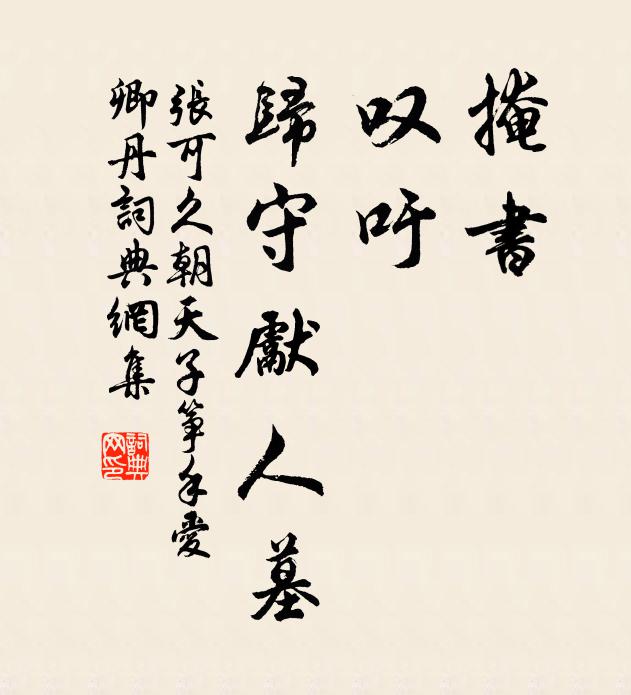 掩書
叹吁
歸守獻人墓
張可久朝天子筝手愛
卿丹詞典網集
詞典
网印